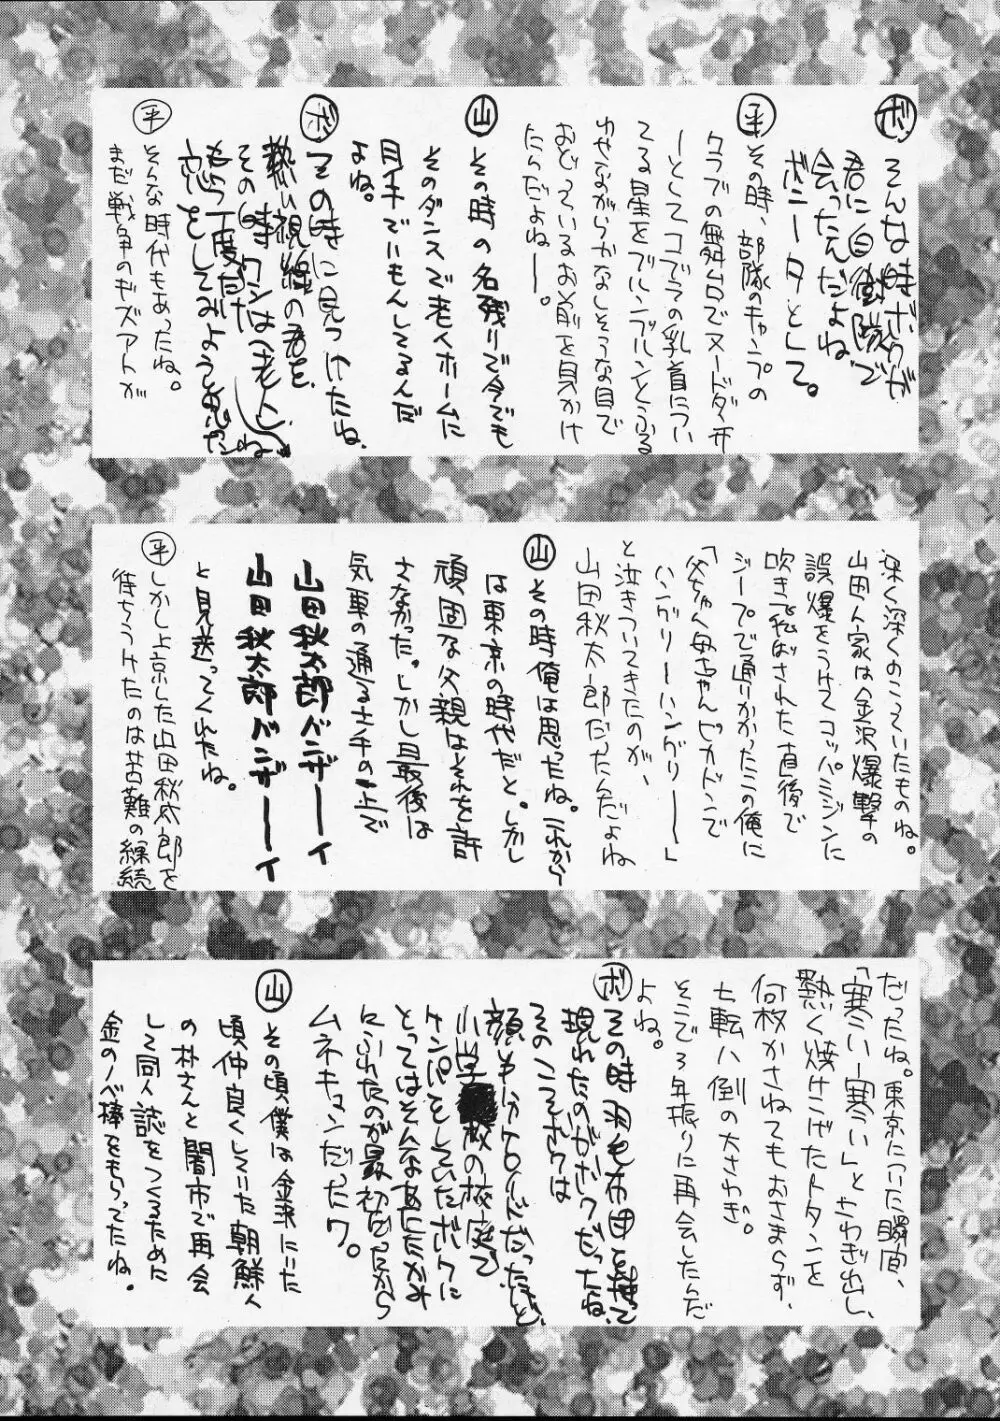 ボ そんな時ボクが
君に白樹隊で
会ったんだよね
ボニータとして。
平 その時、部隊のキャンプの
クラブの舞台でヌードダンサ
ーとしてコブラの乳首につい
てる星をブルンブルンとふる
わせながらかなしそうな目で
おどっているお前を見かけ
たらだよねー。
山 その時の名残りで今でも
そのダンスで老人ホームに
目手でいもんしてるんだ
よね。
ボ その時に見つけたね、
熱い視線の君を、
その時ワシは老人、ね
もう一度だけ
恋をしてみようと思った
平 そんな時代もあったね。
まだ戦争のキズアトが
深く深くのこっていたものね。
山田人家は金沢爆撃の
誤爆をうけてコッパミジンに
吹き飛ばされた直後で
ジープで通りかかったこの俺に
「父ちゃん母ちゃんピカドンで
ハングリーハングリー―」
と泣きついてきたのが、
山田秋太郎だったんだよね
山 その時俺は思ったね。これから
は東京の時代だと。しかし
頑固な父親はそれを許
さなかった。しかし最後は
気車の通る土手の上で
山田秋太郎バンザーイ
山田秋太郎バンザーイ
と見送ってくれたね。
平 しかし上京した山田秋太郎を
待ちうけたのは苦難の継続
だったね。東京についた瞬間、
「寒いー寒い」とさわぎ出し、
熱く焼けこげたトタンを
何枚かさねてもおさまらず、
七転八倒の大さわぎ。
そこで3年振りに再会したんだ
よね。
ボ その時羽毛布団を持って
現れたのがボクだったね、
そのころボクは
顔しか分からなかったけど、
小学校の校庭で
ケンパをしていたボクに
とってはそんなあたたかみ
にふれたのが最初だから
ムネキュンだったワ。
山 その頃僕は金沢にいた
頃仲良くしていた朝鮮人
の朴さんと闇市で再会
して同人誌をつくるため
金のノベ棒をもらってたね。